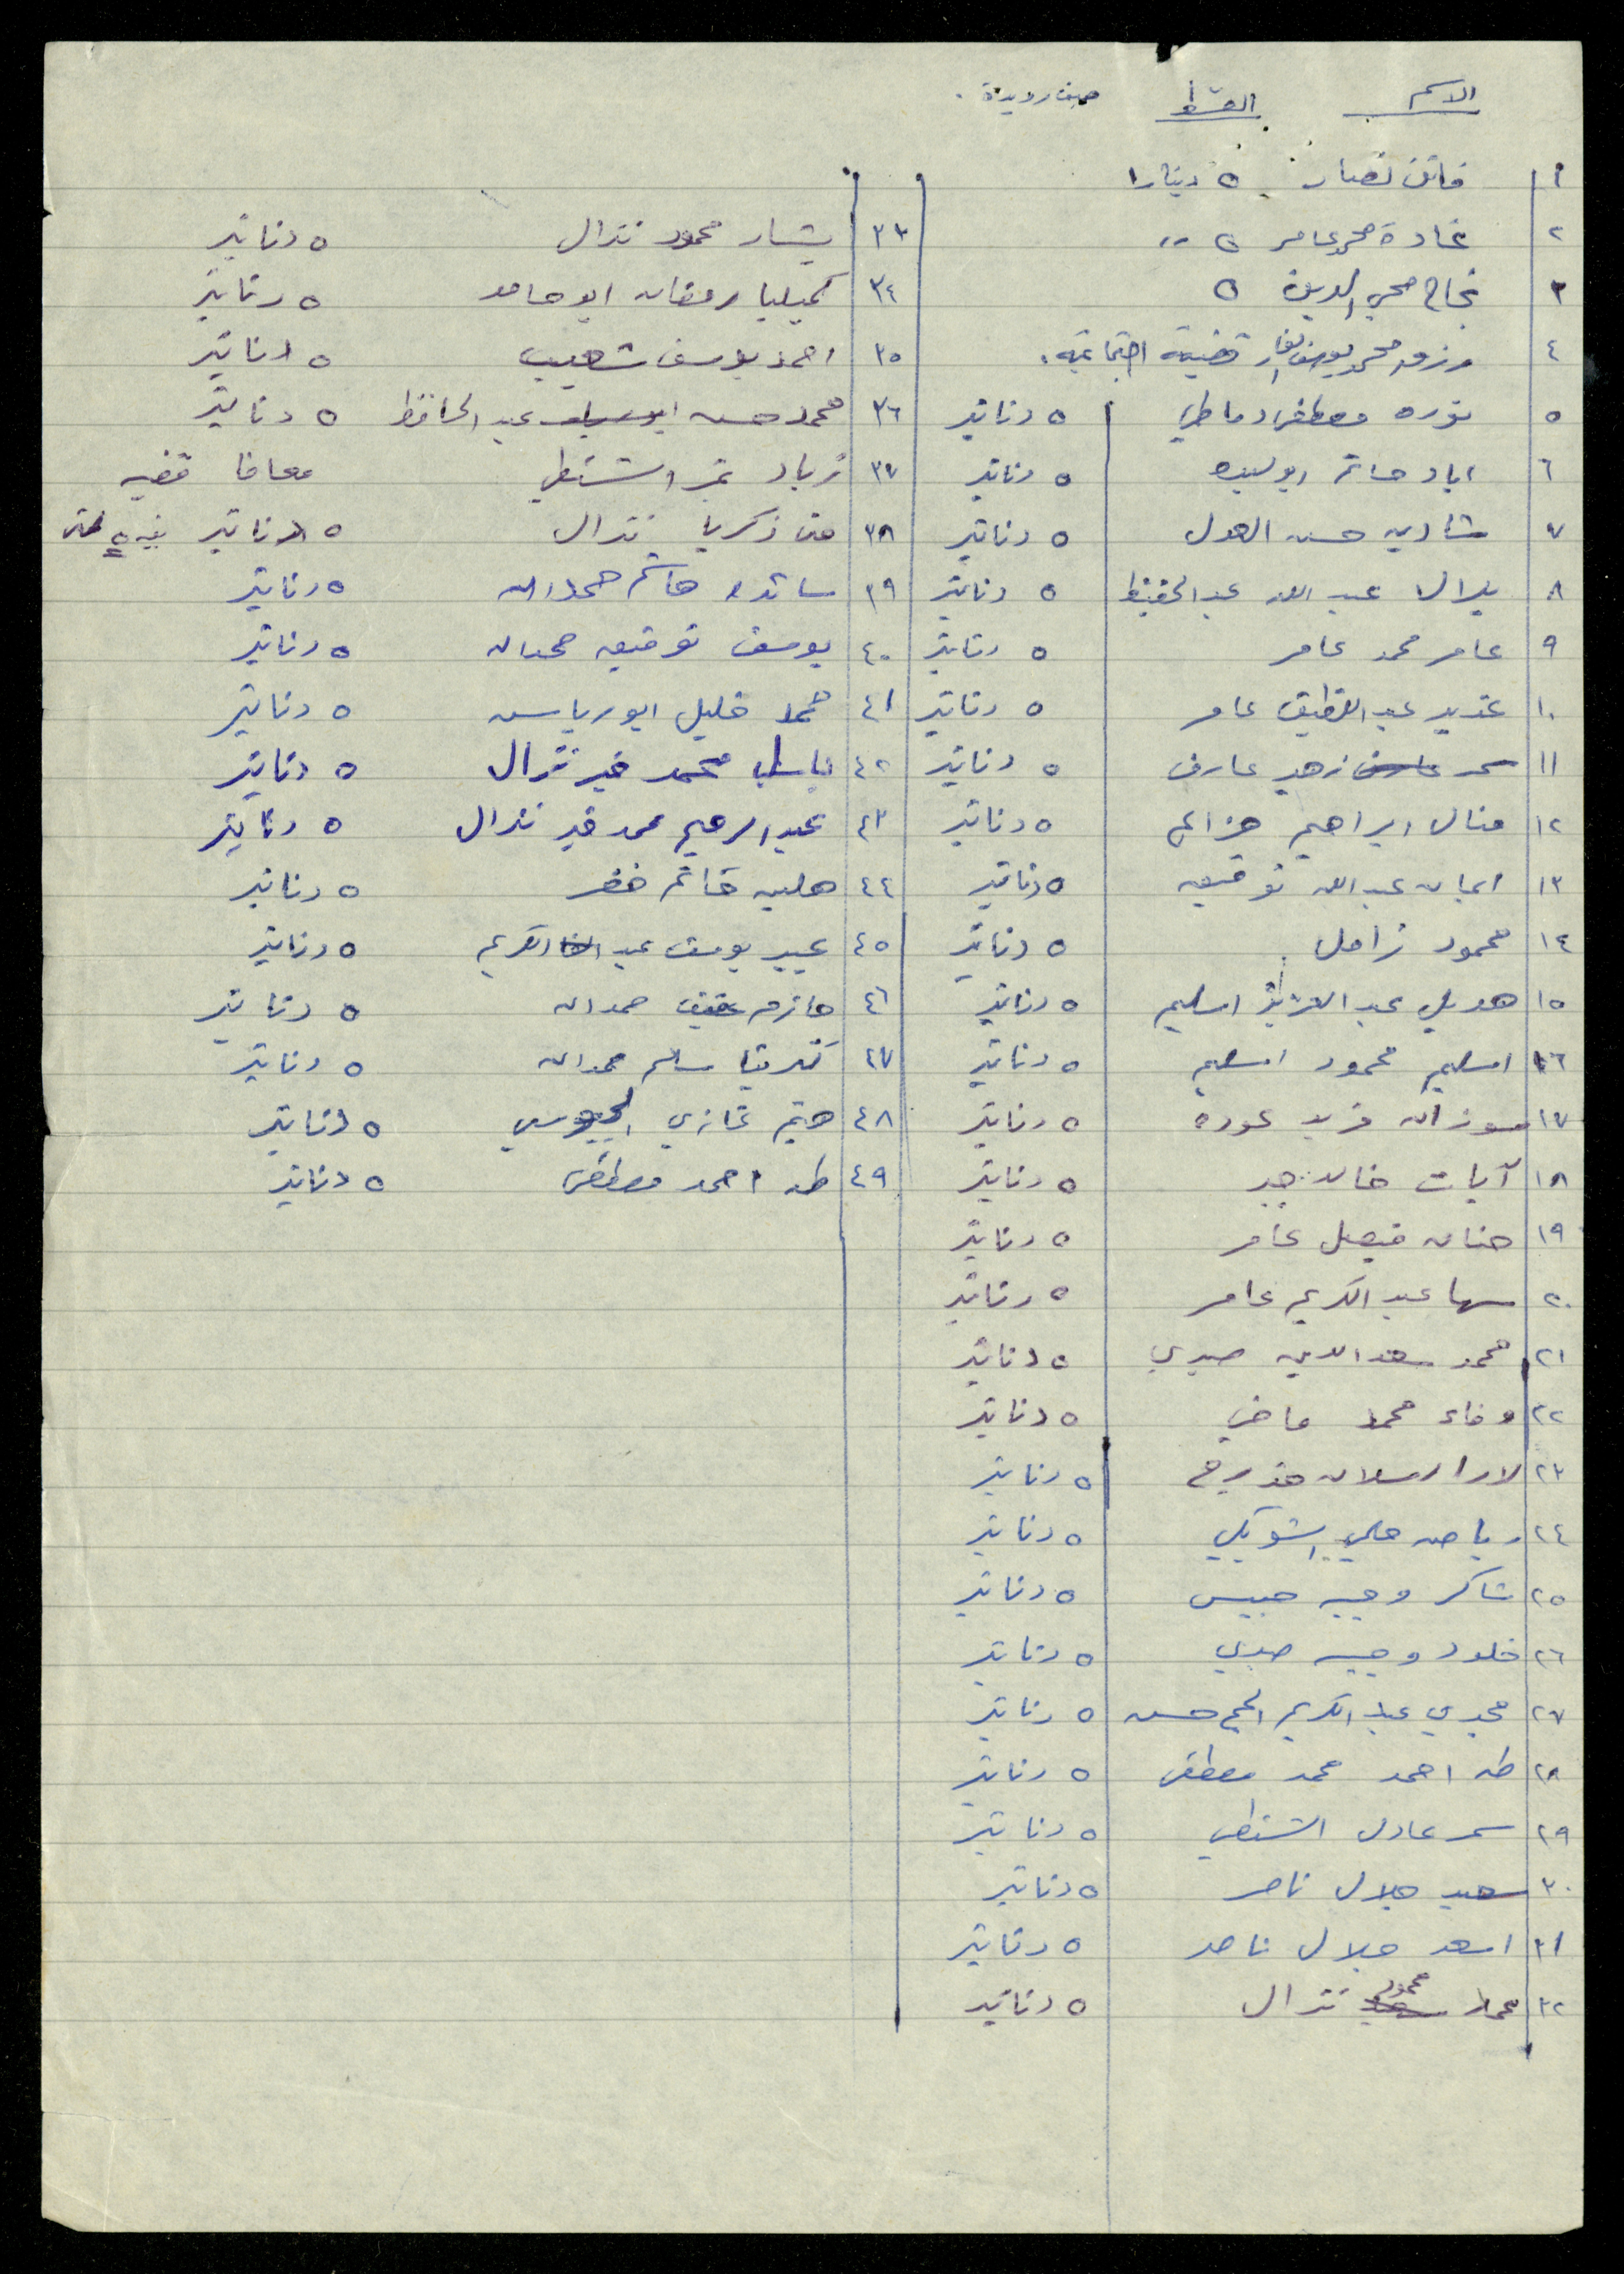 الاسم القسط
١ فاتن نصار ٥ دينارا
٢ غادة محمد عامر ٥ ،،
٣ نجاح محي الدين ٥
٤ محمد يوسف قضية اجتماعية.
٥ نوره مصطفى دماطي ٥ دنانير
٦ اياد حاتم ابو لبده ٥ دنانير
٧ شادي حسن العدل ٥ دنانير
٨ بلال عبد الله عبد الحفيظ ٥ دنانير
٩ عامر محمد عامر ٥ دنانير
١٠ غدير عبد اللطيف عامر ٥ دنانير
١١ سحر زهير عارف ٥ دنانير
١٢ منال ابراهيم هزاع ٥ دنانير
١٣ ايمان عبد الله توفيق ٥ دنانير
١٤ محمود زامل ٥ دنانير
١٥ هديل عبد العزيز اسليم ٥ دنانير
١٦ اسليم محمود اسليم ٥ دنانير
١٧ سوزان فريد عوده ٥ دنانير
١٨ آيات خالد جبر ٥ دنانير
١٩ حنان فيصل عامر ٥ دنانير
٢٠ سها عبد الكريم عامر ٥ دنانير
٢١ محمد سعد الدين صبري ٥ دنانير
٢٢ وفاء محمد ماضي ٥ دنانير
٢٣ لارا ارسلان ٥ دنانير
٢٤ رياض علي الشوبكي ٥ دنانير
٢٥ شاكر وجيه حبيس ٥ دنانير
٢٦ خلود وجيه صبري ٥ دنانير
٢٧ مجدي عبد الكريم الحج حسن ٥ دنانير
٢٨ طه احمد محمد مصطفى ٥ دنانير
٢٩ سمر عادل الشنطي ٥ دنانير
٣٠ سعيد جلال ناصر ٥ دنانير
٣١ اسعد جلال ناصر ٥ دنانير
٣٢ محمد محمود نزال ٥ دنانير
٣٣ يسار محمود نزال ٥ دنانير
٣٤ كميليا رمضان ابو حامد ٥ دنانير
٣٥ احمد يوسف شعيب ٥ دنانير
٣٦ محمد حسن عبد الحافظ ٥ دنانير
٣٧ زياد الشنطي معافا قضيه
٣٨ منى زكريا نزال ٥ دنانير
٣٩ سائده هاشم حمدان ٥ دنانير
٤٠ يوسف توفيق حمدان ٥ دنانير
٤١ محمد خليل ابو رياس ٥ دنانير
٤٢ باسل محمد خير نزال ٥ دنانير
٤٣ عبد الرحيم محمد خير نزال ٥ دنانير
٤٤ هليه حاتم خضر ٥ دنانير
٤٥ عبير يوسف عبد الكريم ٥ دنانير
٤٦ حازم عفيف حمدان ٥ دنانير
٤٧ سالم حمدان ٥ دنانير
٤٨ هيثم غازي الجيوسي ٥ دنانير
٤٩ طه احمد مصطفى ٥ دنانير